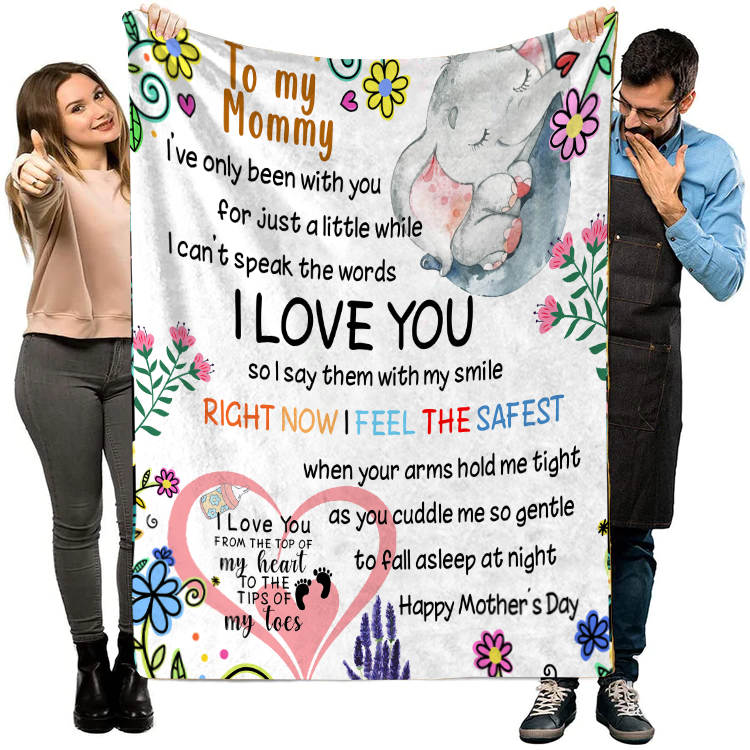 To my
Mommy
I've only been with you
for just a little while
I can't speak the words
I LOVE YOU
so I say them with my smile
RIGHT NOW I FEEL THE SAFEST
when your arms hold me tight
as you cuddle me so gentle
to fall asleep at night
Happy Mother's Day
I Love You
FROM THE TOP OF
my heart
TO THE
TIPS OF
my toes